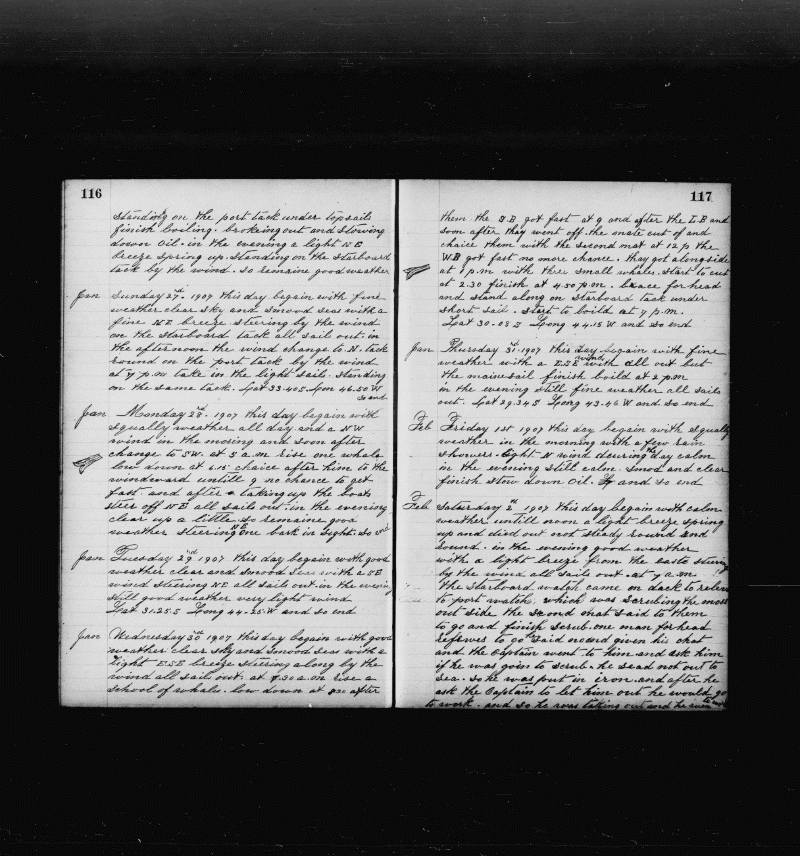 116
standing on the port tack under topsails
finish boiling. brokeing out and stowing
down Oil. in the evening a light NE
breeze spring up. standing on the Starboard
tack by the wind. so remaine good weather
Jan Sunday 27. 1907 this day begain with fine
weather clear sky and smood seas with a
fine NE breeze steering by the wind
on the starboard tack all sail out. in
the afternoon the wind change to N. tack
round on the port tack by the wind
at 7 p.m take in the light sails. standing
on the same tack. Lat 33.40 S. Lon 46.50 W
so end
Jan Monday 28. 1907 this day begain with
squally weather all day and a NW
wind in the morning and soon after
change to SW. at 5 a.m rise one whale
low down at 6.15 chaice after him to the
windward untill 9 no chance to get
fast and after taking up the boats
steer off NE all sails out. in the evening
clear up a little so remaine good
weather steering NE one bark in sight. so end
Jan Tuesday 29 1907 this day begain with good
weather clear and smood seas with a SE
wind steering NE all sails out. in the evening
still good weather very light wind
Lat 31.25. S Long 44-25. W and so end
Jan Wednesday 30 1907 this day begain with good
weather clear sky and smood seas with a
light ESE breeze steering along by the
wind all sail out. at 7.30 a.m rise a
school of whale. low down at 830 after
117
them the S.B got fast at 9 and after the L.B and
soon after they went off. the mate cut of and
chaice them with the second mat at 12 p the
W.B got fast no more chance. thay got alongside
at 1 p.m with three small whales. start to cut
at 2.30 finish at 4.50 p.m. brace forhead
and stand along on starboard tack under
short sail. start to boild at 7 p.m.
Lat 30.03 S Long 44.15 W and so end
Jan Thursday 31. 1907 this day begain with fine
weather with a ESE wind with all out but
the mainesail finish boild at 2 p.m
in the evening still fine weather all sails
out. Lat 29.34 S Long 43.46 W and so end
Feb Friday 1st 1907 this day begain with squally
weather in the morning with a few rain
showers. light N wind deuring the day calm
in the evening still calm. Smod and clear
finish stow down Oil. and so end
Feb Saturday 2 1907 this day begain with calm
weather untill noon a light breeze spring
up and died out not steady round and
round. in the evening good weather
with a light breeze from the easte steering
by the wind all sails out. at 7 a.m
the starboard watch came on dack to releve
to port watch, which was scrubing the mess
out side. the second mat said to them
to go and finish scrub. one man forhead
referves to go said no and given his chat
and the Captain went to him and ask him
if he was goin to scrub. he sead not out to
sea. so he was put in iron. and after he
ask the Captain to let him out he would go
to work. and so he was taking out and he